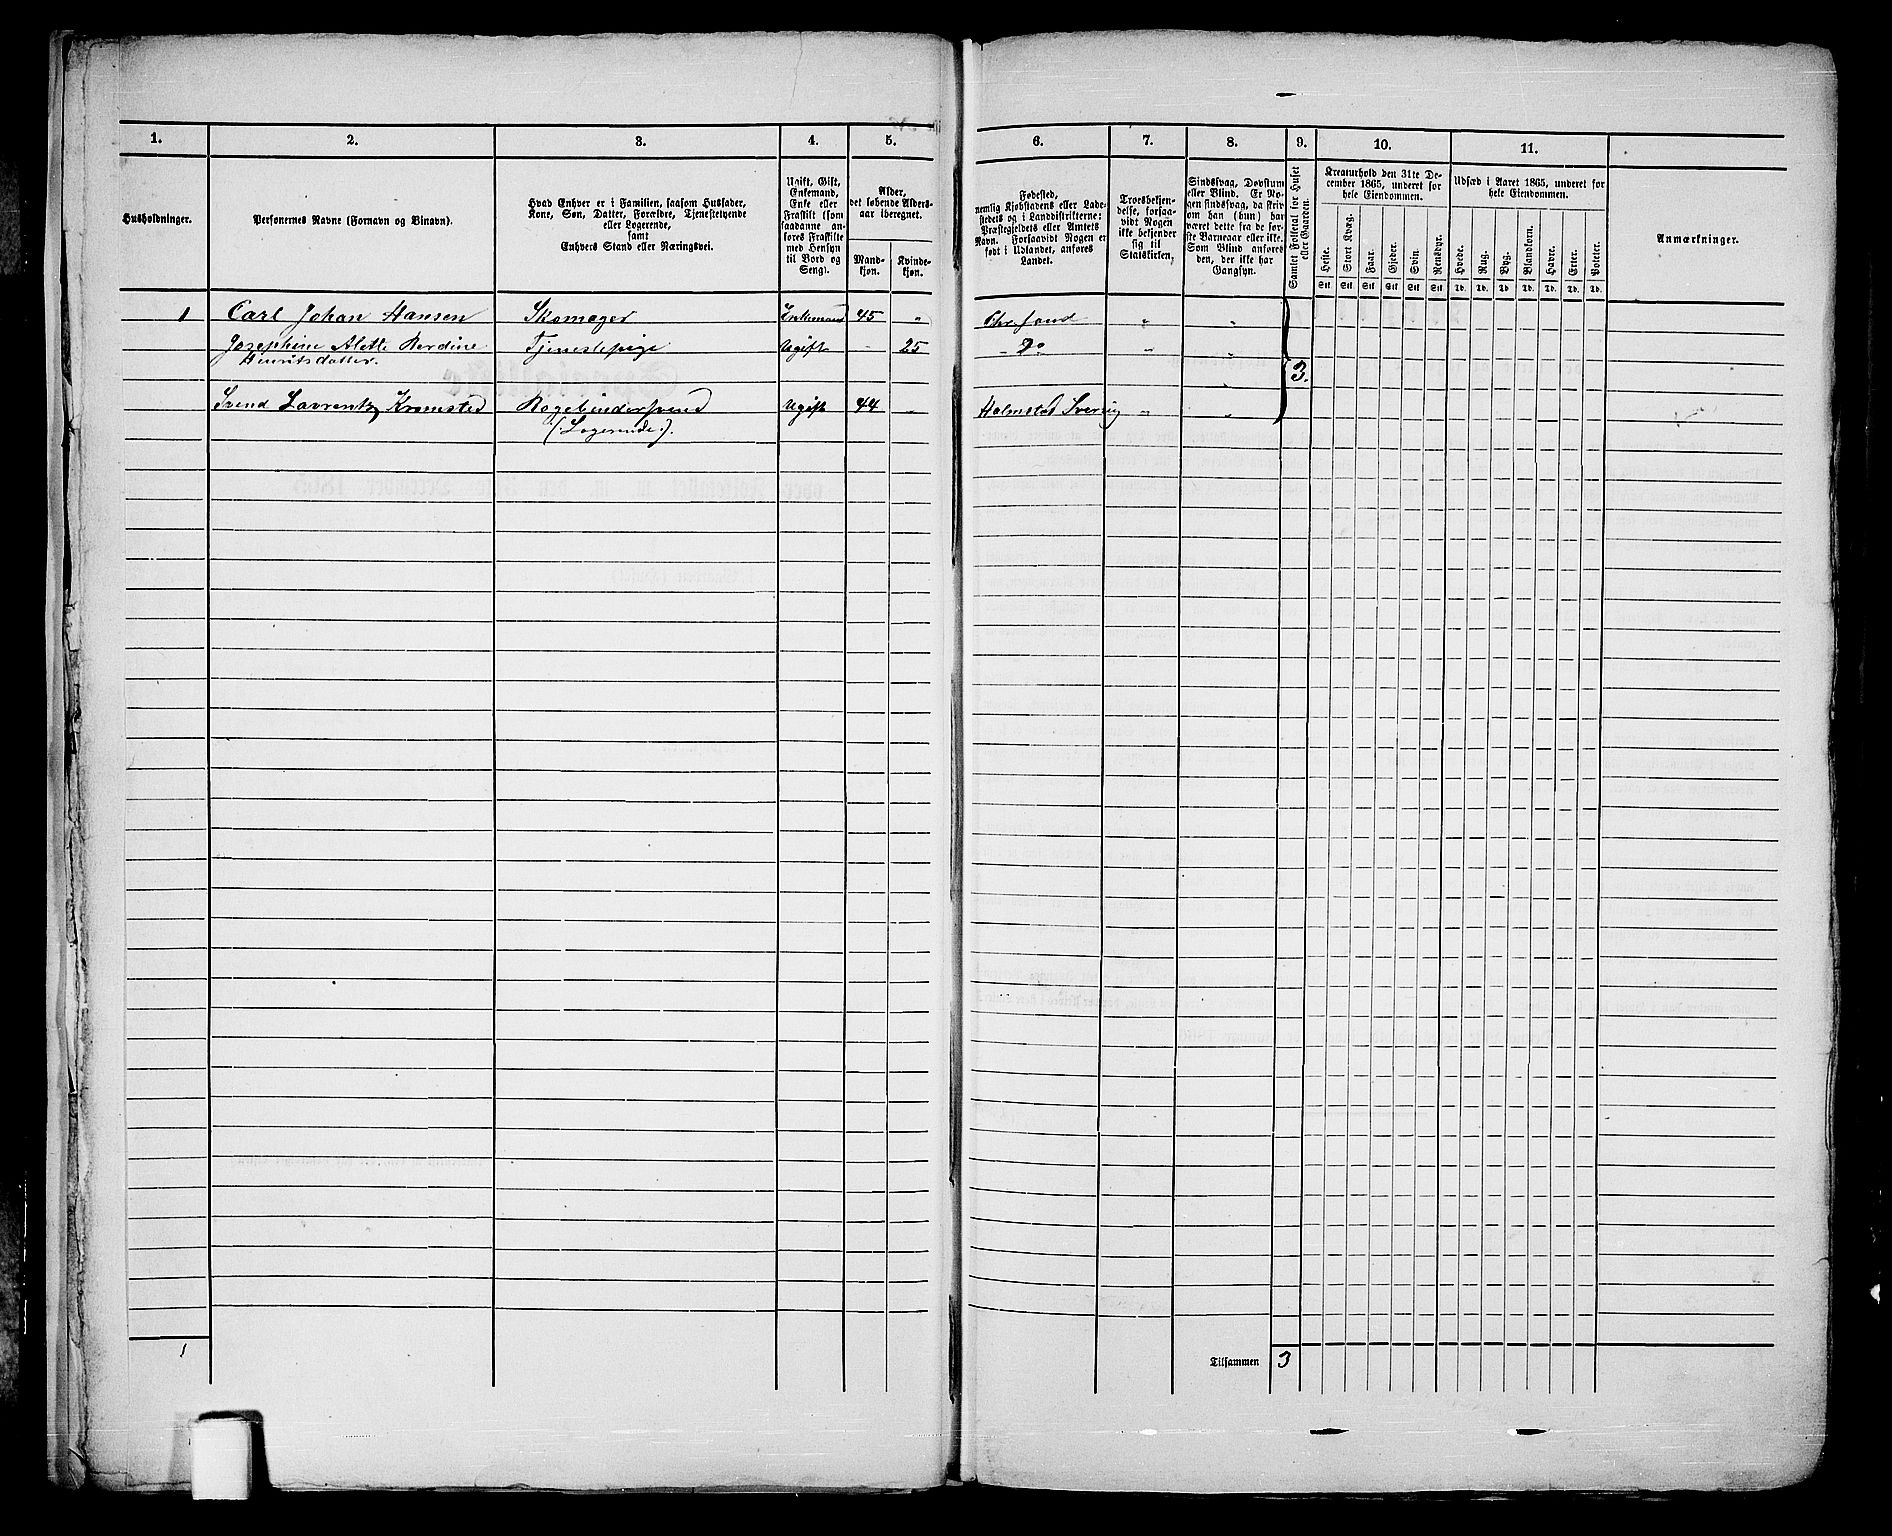 1. 2. 3. 4. 5. 6. 7. 8. 9. 10. 11.
Husholdninger.
Personernes Navne (Fornavn og Binavn).
Hvad Enhver er i Familien, saasom Husfader,
Kone, Søn, Datter, Forældre, Tjenestetyende
eller Logerende,
samt
Enhvers Stand eller Næringsvei.
Ugift, Gift,
Enkemand,
Enke eller
Fraskilt (som
saadanne an-
føres Fraskilte
med Hensyn
til Bord og
Seng).
Alder,
det løbende Alders-
aar iberegnet.
Mand-
kjøn.
Kvinde-
kjøn.
Fødested,
nemlig Kjøbstadens eller Lade-
stedets og i Landdistrikterne:
Præstegjeldets eller Amtets
Navn. Forsaavidt Nogen er
født i Udlandet, anføres
Landet.
Troesbekjen-
delse, forsaa-
vidt Nogen
ikke bekjender
sig til
Statskirken.
Sindssvag, Døvstum
eller Blind. Er No-
gen sindssvag, da skriv
om han (hun) har
været dette fra de før-
ste Barneaar eller ikke.
Som Blind anføres
den, der ikke har
Gangsyn.
Samlet Folketal for Huset
eller Gaarden.
Kreaturhold den 31te De-
cember 1865, underet for
hele Eiendommen.
Heste. Stort Kvæg. Faar. Gjeder. Svin Rensdyr.
Stk Stk Stk Stk Stk Stk
Udsæd i Aaret 1865, underet for
hele Eiendommen.
Hvede. Rug. Byg. Blandkorn. Havre. Erter. Poteter.
Td. Td. Td. Td. Td. Td. Td.
Anmærkninger.
1 Carl Johan Hansen Skomager Enkemand 45 " Chr.sand " "
Josephine Alette Berdine Tjenestepige Ugift - 25 " Do " "
Henriksdatter.
3.
Svend Lavrentz Kromsted Bogbindersvend Ugift 44 " Halmstad Sverig " "
(: Logerende :).
1
Tilsammen 3